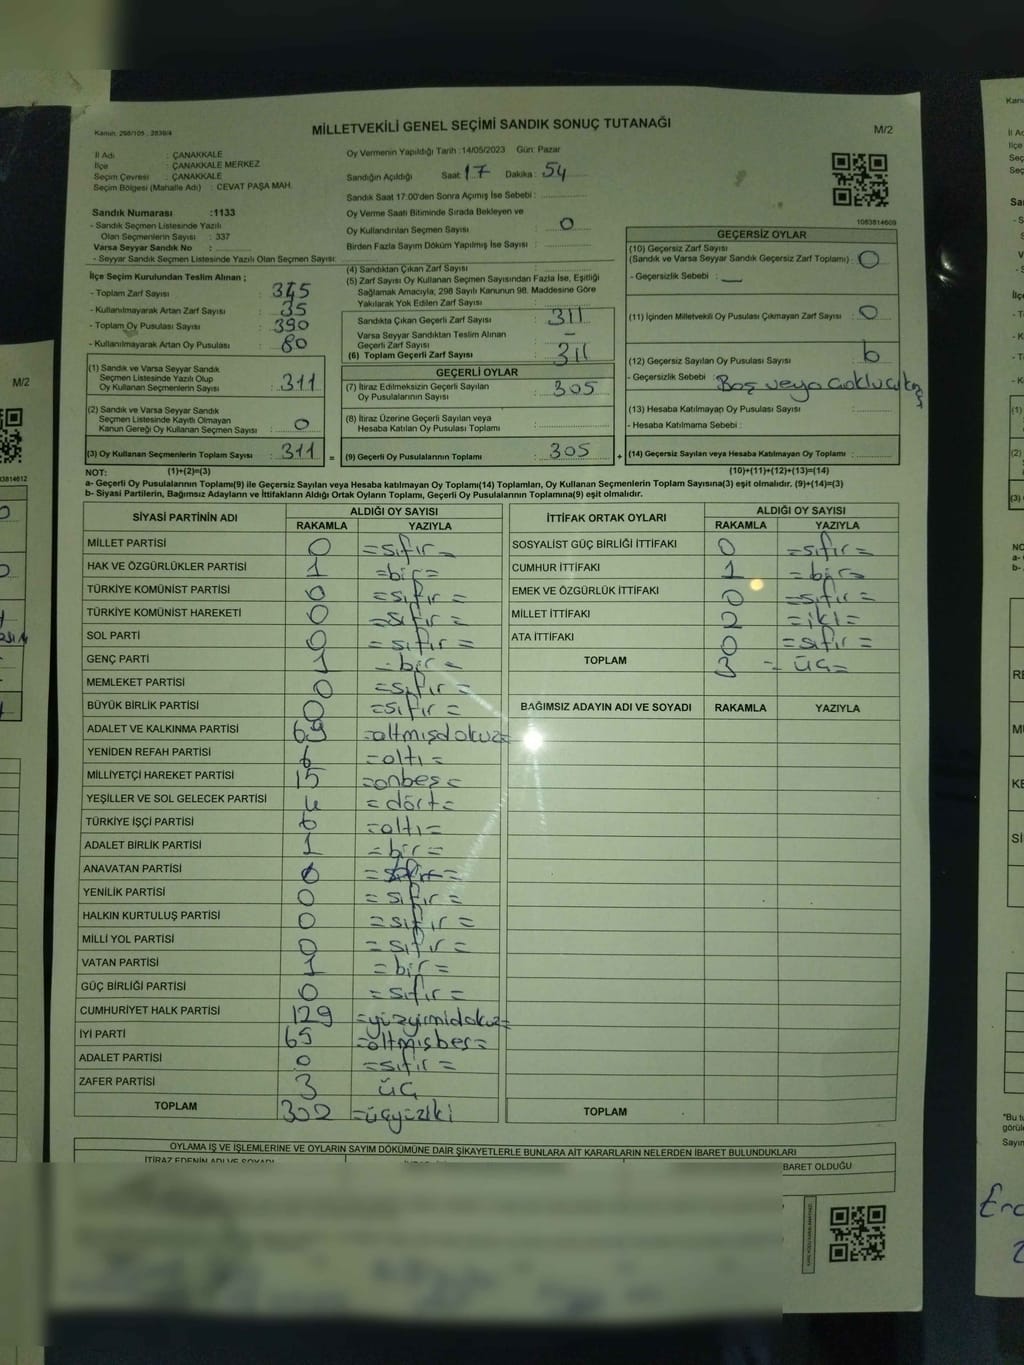 Kanun: 298/105 , 2839/4
MİLLETVEKİLİ GENEL SEÇİMİ SANDIK SONUÇ TUTANAĞI
M/2
İl Adı : ÇANAKKALE
İlçe : ÇANAKKALE MERKEZ
Seçim Çevresi : ÇANAKKALE
Seçim Bölgesi (Mahalle Adı) : CEVAT PAŞA MAH.
Oy Vermenin Yapıldığı Tarih :14/05/2023 Gün: Pazar
Sandığın Açıldığı Saat: 17 Dakika : 54
Sandık Saat 17.00'den Sonra Açımış İse Sebebi :
Sandık Numarası :1133
- Sandık Seçmen Listesinde Yazılı
Olan Seçmenlerin Sayısı : 337
Varsa Seyyar Sandık No :
- Seyyar Sandık Seçmen Listesinde Yazılı Olan Seçmen Sayısı:
Oy Verme Saati Bitiminde Sırada Bekleyen ve
Oy Kullandırılan Seçmen Sayısı : 0
Birden Fazla Sayım Döküm Yapılmış İse Sayısı :
1083814609
İlçe Seçim Kurulundan Teslim Alınan ;
- Toplam Zarf Sayısı : 345
- Kullanılmayarak Artan Zarf Sayısı : 35
- Toplam Oy Pusulası Sayısı : 390
- Kullanılmayarak Artan Oy Pusulası : 80
(1) Sandık ve Varsa Seyyar Sandık
Seçmen Listesinde Yazılı Olup
Oy Kullanan Seçmenlerin Sayısı : 311
(2) Sandık ve Varsa Seyyar Sandık
Seçmen Listesinde Kayıtlı Olmayan
Kanun Gereği Oy Kullanan Seçmen Sayısı : 0
(3) Oy Kullanan Seçmenlerin Toplam Sayısı : 311 =
(4) Sandıktan Çıkan Zarf Sayısı :
(5) Zarf Sayısı Oy Kullanan Seçmen Sayısından Fazla İse, Eşitliği
Sağlamak Amacıyla, 298 Sayılı Kanunun 98. Maddesine Göre
Yakılarak Yok Edilen Zarf Sayısı :
Sandıkta Çıkan Geçerli Zarf Sayısı : 311
Varsa Seyyar Sandıktan Teslim Alınan
Geçerli Zarf Sayısı : -
(6) Toplam Geçerli Zarf Sayısı : 311
GEÇERLİ OYLAR
(7) İtiraz Edilmeksizin Geçerli Sayılan
Oy Pusulalarının Sayısı : 305
(8) İtiraz Üzerine Geçerli Sayılan veya
Hesaba Katılan Oy Pusulası Toplamı :
(9) Geçerli Oy Pusulalarının Toplamı : 305 +
GEÇERSİZ OYLAR
(10) Geçersiz Zarf Sayısı
(Sandık ve Varsa Seyyar Sandık Geçersiz Zarf Toplamı) : 0
- Geçersizlik Sebebi : —
(11) İçinden Milletvekili Oy Pusulası Çıkmayan Zarf Sayısı : 0
(12) Geçersiz Sayılan Oy Pusulası Sayısı : 6
- Geçersizlik Sebebi : Boş veya
(13) Hesaba Katılmayan Oy Pusulası Sayısı :
- Hesaba Katılmama Sebebi :
(14) Geçersiz Sayılan veya Hesaba Katılmayan Oy Toplamı :
NOT: (1)+(2)=(3) (10)+(11)+(12)+(13)=(14)
a- Geçerli Oy Pusulalarının Toplamı(9) ile Geçersiz Sayılan veya Hesaba katılmayan Oy Toplamı(14) Toplamları, Oy Kullanan Seçmenlerin Toplam Sayısına(3) eşit olmalıdır. (9)+(14)=(3)
b- Siyasi Partilerin, Bağımsız Adayların ve İttifakların Aldığı Ortak Oyların Toplamı, Geçerli Oy Pusulalarının Toplamına(9) eşit olmalıdır.
SİYASİ PARTİNİN ADI ALDIĞI OY SAYISI
RAKAMLA YAZIYLA
MİLLET PARTİSİ 0 =sıfır=
HAK VE ÖZGÜRLÜKLER PARTİSİ 1 =bir=
TÜRKİYE KOMÜNİST PARTİSİ 0 =sıfır=
TÜRKİYE KOMÜNİST HAREKETİ 0 =sıfır=
SOL PARTİ 0 =sıfır=
GENÇ PARTİ 1 =bir=
MEMLEKET PARTİSİ 0 =sıfır=
BÜYÜK BİRLİK PARTİSİ 0 =sıfır=
ADALET VE KALKINMA PARTİSİ 69 =altmışdokuz=
YENİDEN REFAH PARTİSİ 6 =altı=
MİLLİYETÇİ HAREKET PARTİSİ 15 =onbeş=
YEŞİLLER VE SOL GELECEK PARTİSİ 4 =dört=
TÜRKİYE İŞÇİ PARTİSİ 6 =altı=
ADALET BİRLİK PARTİSİ 1 =bir=
ANAVATAN PARTİSİ 0 =sıfır=
YENİLİK PARTİSİ 0 =sıfır=
HALKIN KURTULUŞ PARTİSİ 0 =sıfır=
MİLLİ YOL PARTİSİ 0 =sıfır=
VATAN PARTİSİ 1 =bir=
GÜÇ BİRLİĞİ PARTİSİ 0 =sıfır=
CUMHURİYET HALK PARTİSİ 129 =yüzyirmidokuz=
İYİ PARTİ 65 =altmışbeş=
ADALET PARTİSİ 0 =sıfır=
ZAFER PARTİSİ 3 üç
TOPLAM 302 =üçyüziki
İTTİFAK ORTAK OYLARI ALDIĞI OY SAYISI
RAKAMLA YAZIYLA
SOSYALİST GÜÇ BİRLİĞİ İTTİFAKI 0 =sıfır=
CUMHUR İTTİFAKI 1 =bir=
EMEK VE ÖZGÜRLÜK İTTİFAKI 0 =sıfır=
MİLLET İTTİFAKI 2 =iki=
ATA İTTİFAKI 0 =sıfır=
TOPLAM 3 =üç=
BAĞIMSIZ ADAYIN ADI VE SOYADI RAKAMLA YAZIYLA
TOPLAM
OYLAMA İŞ VE İŞLEMLERİNE VE OYLARIN SAYIM DÖKÜMÜNE DAİR ŞİKAYETLERLE BUNLARA AİT KARARLARIN NELERDEN İBARET BULUNDUKLARI
İTİRAZ EDENİN ADI VE SOYADI
BARET OLDUĞU
M/2